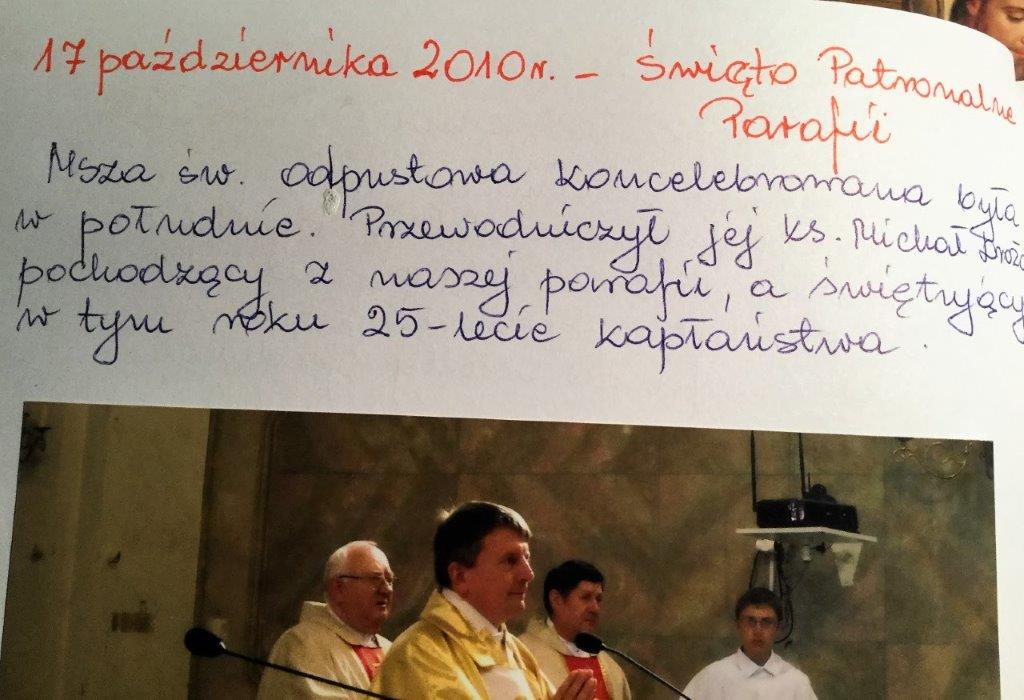 17 października 2010r. - Święto Patronalne
Parafii
Msza św. odpustowa koncelebrowana była
w południe. Przewodniczył jej ks. Michał
pochodzący z naszej parafii, a świętujący
w tym roku 25-lecie kapłaństwa.